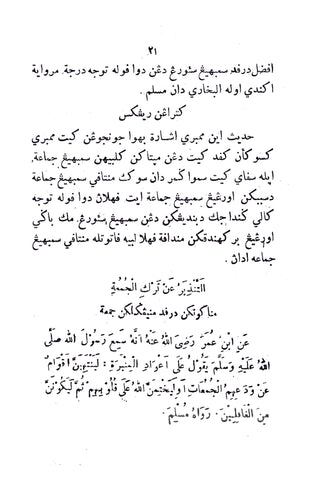 ٢١
افضل درفد سمبهيڠ سئورڠ دڠن دوا ڤوله توجه درجة. مرواية
اكندي اوله البخاري دان مسلم .
كتراڠن ريڠكس
حديث اين ممبري اشارة بهوا جونجوڠن كيت ممبري
كسوكأن كڤد كيت دڠن مپتاكن كلبيهن سمبهيڠ جماعة
اڤيله سڤاي كيت سموا ڬمر دان سوك منتافي سمبهيڠ جماعة
دسبيكن اورڠيڠ سمبهيڠ جماعة ايت ڤهلاڽ دوا ڤوله توجه
كالي ڬنداجك دبنديڠكن دڠن سمبهيڠ سئورڠ. مك باڬي
اورڠيڠ بركهندقكن منداڤة ڤهلا لبيه ڤاتوتله منتافي سمبهيڠ
جماعه ادان .
اَلتَّنْذِيرُ عَنْ تَرْكِ الْجُمُعَةِ
مناكوتكن درفد منيڠڬلكن جمعة
عَنِ ابْنِ عُمَرَ رَضِيَ اللهُ عَنْهُ اَنَّهُ سَمِعَ رَسُوْلَ اللهِ صَلَّى
اللهُ عَلَيْهِ وَسَلَّمَ يَقُوْلُ عَلَى اَعْوَادِ الْمِنْبَرِهِ : لَيَنْتَهِيَنَّ اَقْوَامٌ
عَنْ وَدْعِهِمُ الْجُمُعَاتِ اَوْلَيَخْتِمَنَّ اللهُ عَلَى قُلُوْبِهِمْ ثُمَّ لَيَكُوْنُنَّ
مِنَ الْغَافِلِيْنَ . رَوَاهُ مُسْلِم .